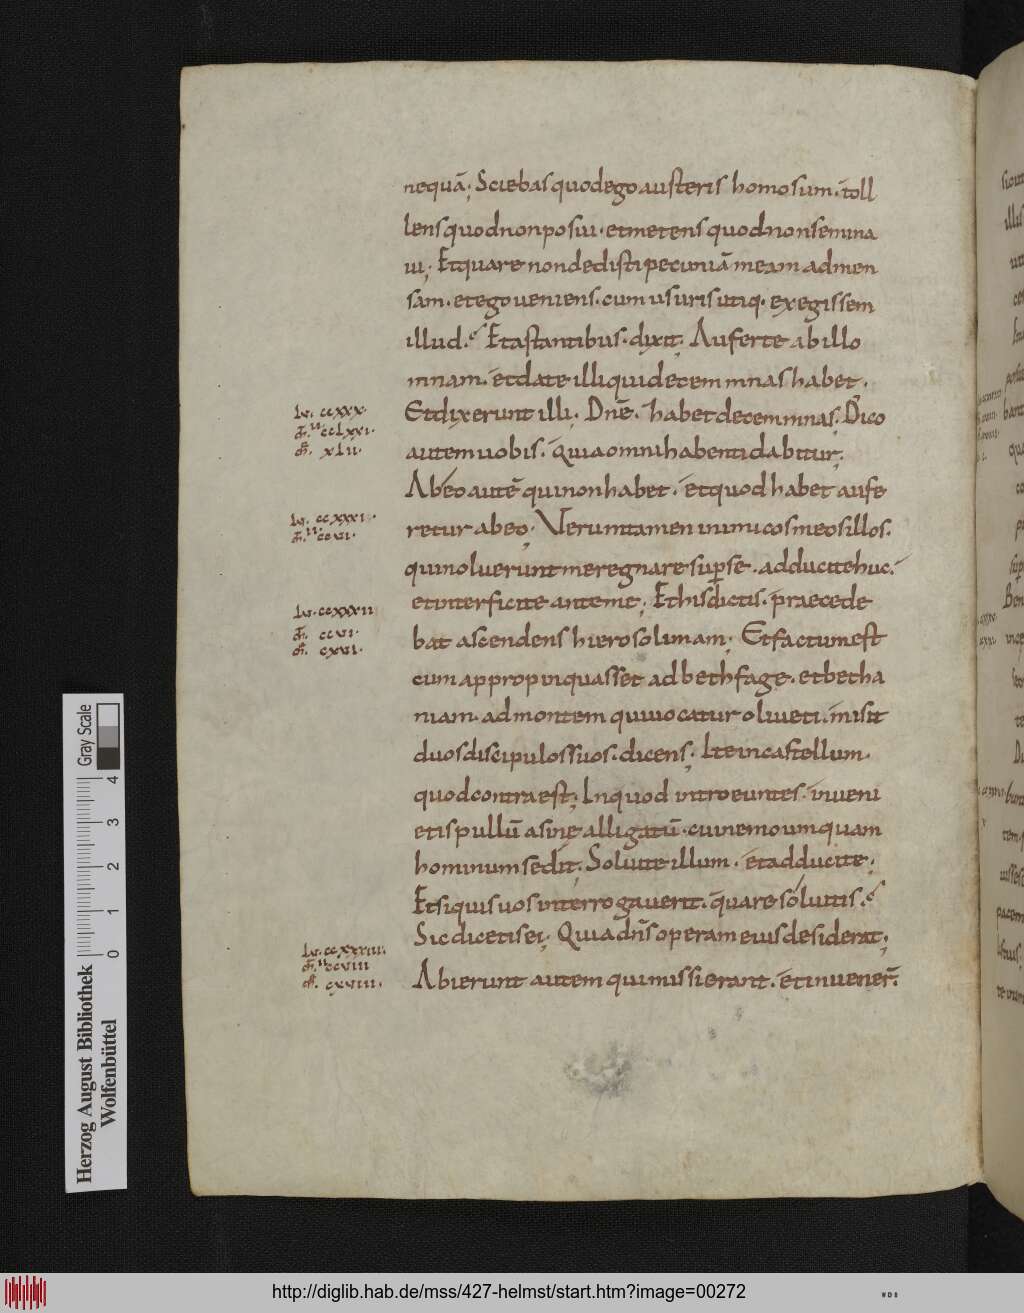 nequā; Sciebas quod ego austeris homo sum. toll
lens quod non posui. et metens quod non semina
ui; Et quare non dedisti pecuniā meam ad men
sam. et ego ueniens. cum usuris utiq. exegissem
illud. Et astantibus. dixit; Auferte ab illo
mnam. et date illi qui decem mnas habet.
Lv. ccxxx.
Et dixerunt illi; Dn̄e. habet decem mnas; Dico
cclxxi.
xlii.
autem uobis. quia omni habenti dabitur;
Ab eo autē qui non habet. et quod habet aufe
Lv. ccxxxi.
retur ab eo; Veruntamen inimicos meos illos.
ccvi.
qui noluerunt me regnare sup̄ se. adducite huc.
Lv. ccxxxii
et interficite ante me; Et his dictis. praecede
ccvi.
cxvi.
bat ascendens hierosolimam; Et factum est
cum appropinquasset ad bethfage. et betha
niam. ad montem qui uocatur oliueti. misit
duos discipulos suos. dicens; Ite in castellum.
quod contra est; In quod introeuntes. inueni
etis pullū asinę alligatū. cui nemo umquam
hominum sedit; Soluite illum. et adducite;
Et si quis uos interrogauerit. quare soluitis.
Sic dicetis ei; Quia dn̄s operam eius desiderat;
Lv. ccxxxiii.
ccviii
cxviii.
Abierunt autem qui missi erant. et inuener̄.
Gray Scale
0 1 2 3 4
Herzog August Bibliothek
Wolfenbüttel
http://diglib.hab.de/mss/427-helmst/start.htm?image=00272